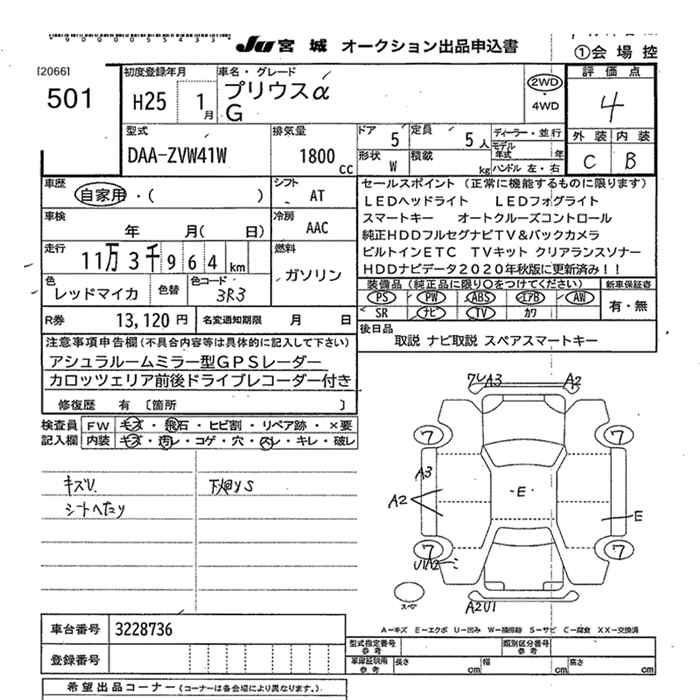 JU 宮城 オークション出品申込書
①会場控
[2066]
501
初度登録年月
H25 1月
車名・グレード
プリウスα
G
2WD
4WD
評価点
4
外装 内装
C B
型式
DAA-ZVW41W
排気量
1800 cc
ドア 5
定員 5人
形状 W
積載 kg
ディーラー・並行
モデル年式 年
ハンドル 左・右
車歴
自家用・( )
シフト
AT
車検
年 月( 日)
冷房
AAC
走行
11万3千964km
燃料
ガソリン
色
レッドマイカ
色替
色コード
3R3
R券 13,120円
名変通知期限 月 日
セールスポイント(正常に機能するものに限ります)
LEDヘッドライト LEDフォグライト
スマートキー オートクルーズコントロール
純正HDDフルセグナビTV&バックカメラ
ビルトインETC TVキット クリアランスソナー
HDDナビデータ2020年秋版に更新済み!!
装備品(純正品に限り○をつけてください)
新車保証書
PS PW ABS エアB AW
SR ナビ TV カワ
有・無
後日品
取説 ナビ取説 スペアスマートキー
注意事項申告欄(不具合内容等は具体的に記入して下さい)
アシュラルームミラー型GPSレーダー
カロッツェリア前後ドライブレコーダー付き
修復歴 有 〔箇所 〕
検査員記入欄
FW キズ・飛石・ヒビ割・リペア跡・×要
内装 キズ・汚レ・コゲ・穴・スレ・キレ・破レ
キズU
シートへたり
下廻りS
ワレA3
A2
7
7
A3
A2
-E-
E
7
7
U1A2
スペア
A2U1
A-キズ E-エクボ U-凹み W-補修跡 S-サビ C-腐食 XX-交換済
車台番号 3228736
登録番号
型式指定番号 参考
類別区分番号 参考
車庫証明用 参考
長さ cm
幅 cm
高さ cm
希望出品コーナー(コーナーは各会場により異なります。)